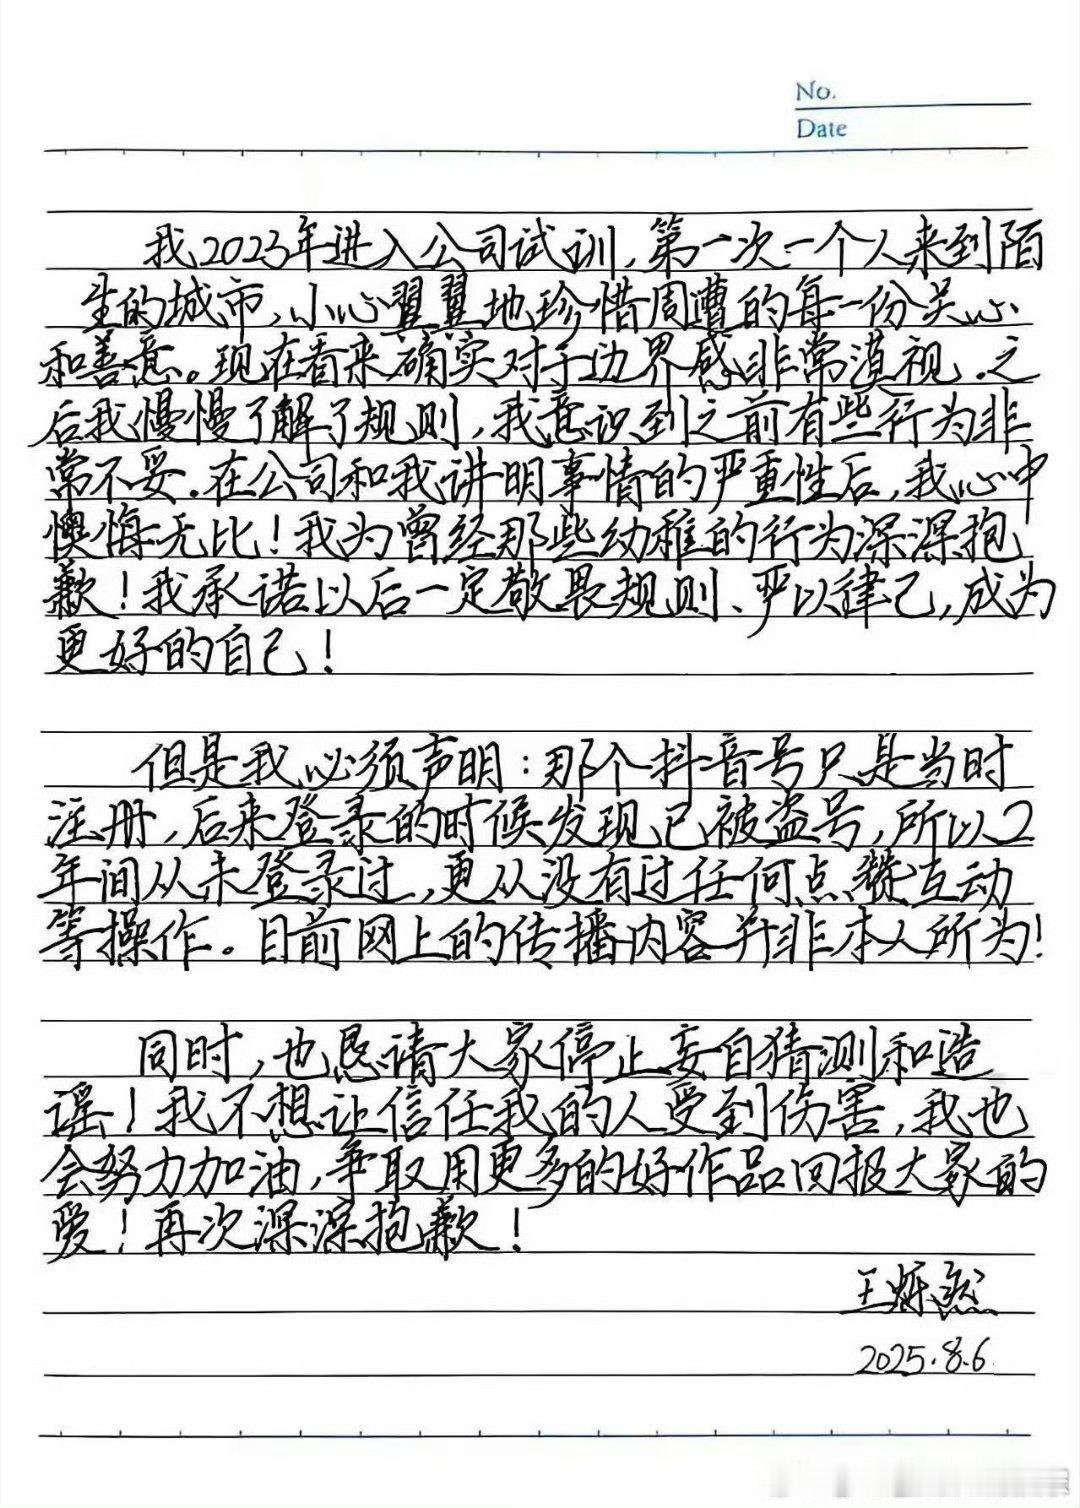 No.
Date
我2023年进入公司试训，第一次一个人来到陌
生的城市，小心翼翼地珍惜周遭的每一份关心
和善意。现在看来确实对于边界感非常漠视．之
后我慢慢了解了规则，我意识到之前有些行为非
常不妥．在公司和我讲明事情的严重性后，我心中
懊悔无比！我为曾经那些幼稚的行为深深抱
歉！我承诺以后一定敬畏规则、严以律己，成为
更好的自己！
但是我必须声明：那个抖音号只是当时
注册，后来登录的时候发现已被盗号，所以2
年间从未登录过，更从没有过任何点赞互动
等操作。目前网上的传播内容并非本人所为！
同时，也恳请大家停止妄自猜测和造
谣！我不想让信任我的人受到伤害，我也
会努力加油，争取用更多的好作品回报大家的
爱！再次深深抱歉！
王烁然
2025.8.6